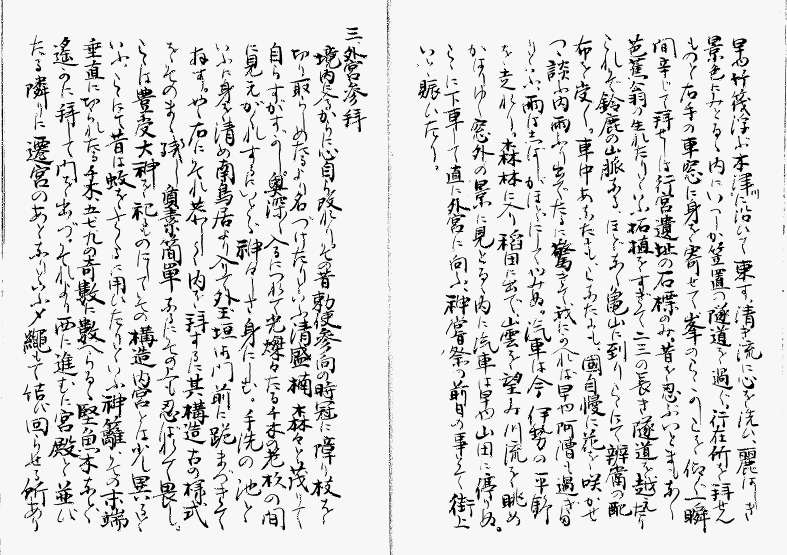 早や竹筏浮ぶ木津川に沿いて東す。清き流に心を洗ひ麗はしき
景色にみとるゝ内にいつしか笠置の隧道を過ぐ。行在所を拝せん
ものと右手の車窓に身を寄せて峯の を仰ぐ。一瞬
間辛じて拝せしは行宮遺址の石標のみ。昔を忍ぶいとまもあらず
芭蕉翁の生れたりといふ柘植をすぎて二三の長き隧道を越えたり
これぞ鈴鹿の山脈なる。ほどなく亀山に到りこゝにて辨當の配
布を受く。車中あなたにも、こなたにも、國自慢に花を咲かせ
つゝ談ふ内雨ふり出でたるに驚きて我にかへれば早や阿漕も過ぎ
りといふ。雨はしばしがほどにしてやみぬ。汽車は今伊勢の平野
を走れり。森林に入り稲田に出で、山雲を望み川流を眺め
かはりゆく窓外の景に見とるゝ内に汽車は早や山田に停りぬ。
こゝに下車して直に外宮に向ふ。神嘗祭の前日の事とて街上
いと賑いたり。
三、外宮参拝
境内に入るからに心自ら改れり。その昔勅使参向の時冠に障りし枝を
切り取らしめたるより名づけたりといふ清盛楠 森々と茂りて
自らすがすがし。奥深く入るにつれて光燦々たる千木の老杉の間
に見えがくれするにいとゞ神々しさ身にしむ。手洗の池と
いふに身を清め南鳥居より入りて外玉垣御門前に跪きづきて
ねむ。やゝ右にそれ恭しく内を拝するに其構造古の様式
をそのまゝ残し質素簡単 にその上も忍ばれて畏し。
こゝは豊受大神を祀るものにしてその構造内宮とは少し異ると
いふことにて昔は 用いたりといふ神籬、その末端
垂直に切られたる千木、五七九の奇数に数へらるゝ堅魚木など
遙かに拝して門を出づ。それより西に進むに宮殿と並び
たる隣りに遷宮のあとなりといふメ縄もて結び回らせる所あり